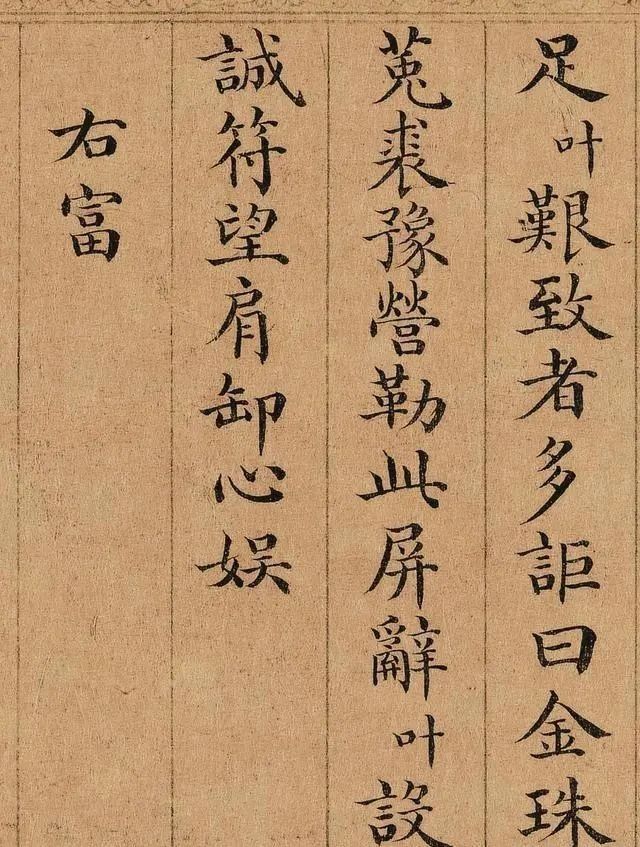 足叶艱致者多詎曰金珠
菟裘豫營勒此屏辭叶設
誠符望肩卸心娛
右富